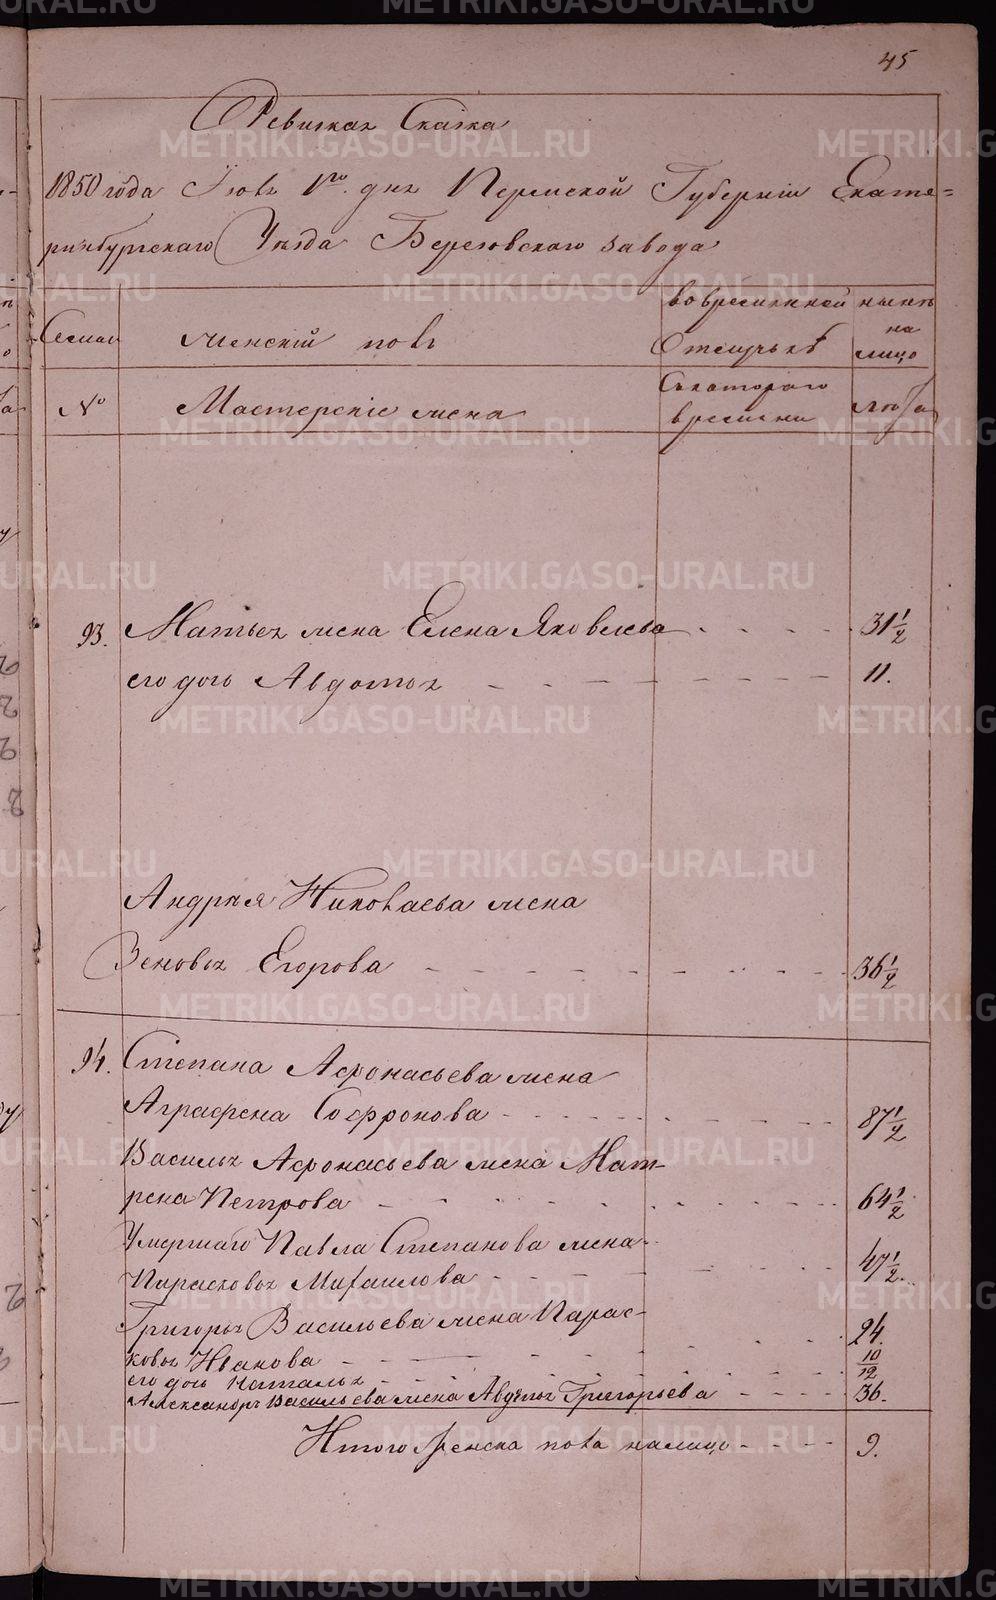 45
Ревизкая Сказка
1850 года Июля 1го дня Пермской Губернiи Екате=
ринбургскаго Уѣзда Березовскаго завода
Семьи
женскiй полъ
во временной
Отлучькѣ
нынѣ
на
лицо
№
Мастерскiе жена
Съкотораго
времени
лѣта
93. Матвея жена Елена Яковлева 31 1/2
его дочь Авдотья 11.
Андрѣя Николаева жена
Зеновья Егорова 36 1/2
94. Степана Афонасьева жена
Аграфена Софронова 87 1/2
Василья Афонасьева жена Мат-
рена Петрова 64 1/2
Умершаго Павла Степанова жена
Парасковья Михаилова 47 1/2.
Григорья Васильева жена Парас-
ковья Иванова 24.
его дочь Наталья 10/12
Александръ Васильева жена Авдотья Григорьева 36.
Итого женска пола налицо 9.
METRIKI.GASO-URAL.RU